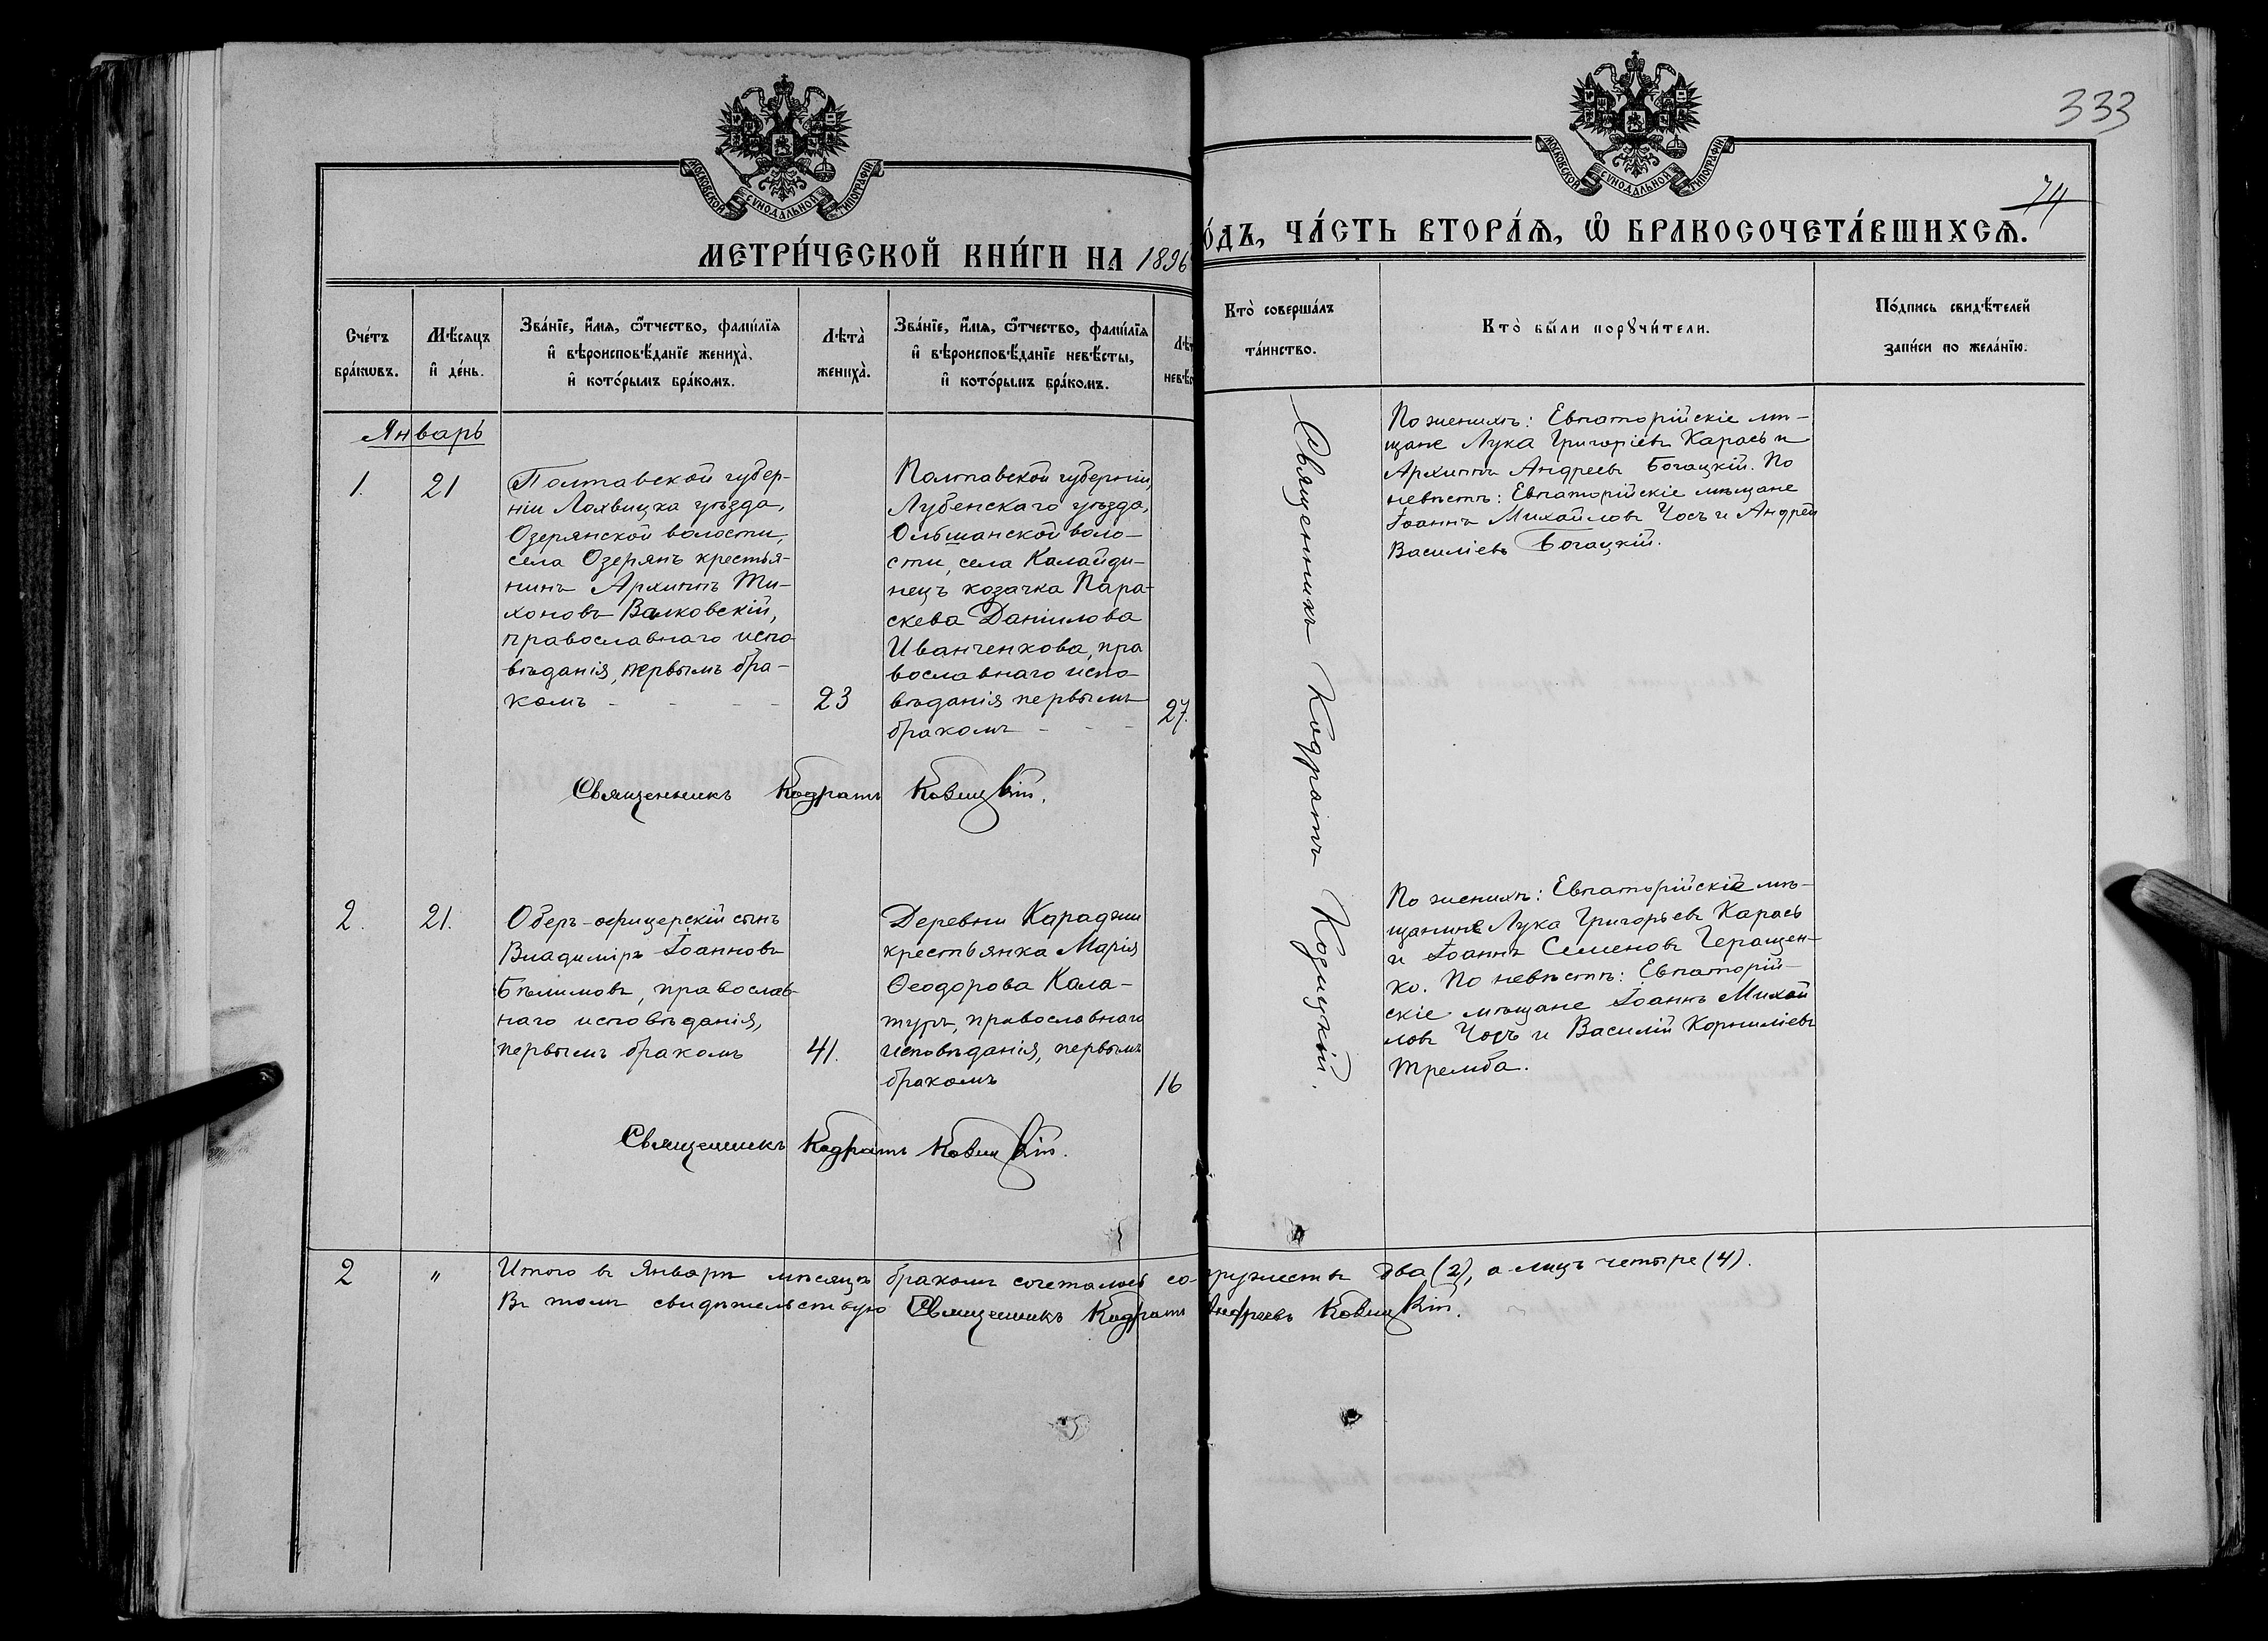 333
74
МОСКОВСКОЙ СѴНОДАЛЬНОЙ ТИПОГРАФІИ
МОСКОВСКОЙ СѴНОДАЛЬНОЙ ТИПОГРАФІИ
МЕТРИ́ЧЕСКОЙ КНИ́ГИ НА 1896
О́ДЪ, ЧА́СТЬ ВТОРА́Ѧ, Ѽ БРАКОСОЧЕТА́ВШИХСѦ.
Сче́тъ
бра́кωвъ.
Мѣ́сѧцъ
и҆ де́нь.
Зва́нїе, и҆́мѧ, ѻ҆́тчество, фами́лїѧ
и҆ вѣроисповѣ́данїе жениха̀,
и҆ кото́рымъ бра́комъ.
Лѣта̀
жениха̀.
Зва́нїе, и҆́мѧ, ѻ҆́тчество, фами́лїѧ
и҆ вѣроисповѣ́данїе невѣ́сты,
и҆ кото́рымъ бра́комъ.
Лѣт
невѣ́с
Кто̀ соверша́лъ
та́инство.
Кто̀ бы́ли порꙋчи́тели.
По́дпись свидѣ́телей
запи́си по жела́нїю.
Январь
1.
21
Полтавской губер-
ніи Лохвицка уѣзда,
Озерянской волости,
села Озерянъ крестья-
нинъ Архиппъ Ти-
хоновъ Валковскій,
православнаго испо
вѣданія, первымъ бра-
комъ
23
Полтавской губерніи,
Лубенскаго уѣзда,
Ольшанской воло-
сти, села Калайди-
нецъ козачка Пара-
скева Даніилова
Иванченкова, пра
вославнаго испо-
вѣданія первымъ
бракомъ
27.
Священникъ Кодратъ Кодицкій.
По женихѣ: Евпаторійскіе мѣ-
щане Лука Григоріевъ Карась и
Архиппъ Андреевъ Богацкій. По
невѣстѣ: Евпаторійскіе мѣщане
Іоаннъ Михайловъ Чосъ и Андрей
Василіевъ Богацкій.
Священникъ Кодратъ
2.
21.
Оберъ-офицерскій сынъ
Владиміръ Іоанновъ
Бѣлимовъ, православ-
наго исповѣданія,
первымъ бракомъ
41.
Деревни Караджи
крестьянка Марія
Ѳеодорова Кала-
туръ, православнаго
исповѣданія, первымъ
бракомъ
16
По женихѣ: Евпаторійскіе мѣ-
щанинъ Лука Григорьевъ Карась
и Іоаннъ Семеновъ Геращен-
ко. По невѣстѣ: Евпаторій-
скіе мѣщане Іоаннъ Михай
ловъ Чосъ и Василій Корниліевъ
Тремба.
Священникъ Кодратъ
2
"
Итого въ Январѣ мѣсяцѣ бракомъ сочеталось супружествъ два (2), а лицъ четыре (4).
Въ томъ свидѣтельствую Священникъ Кодратъ Андреевъ